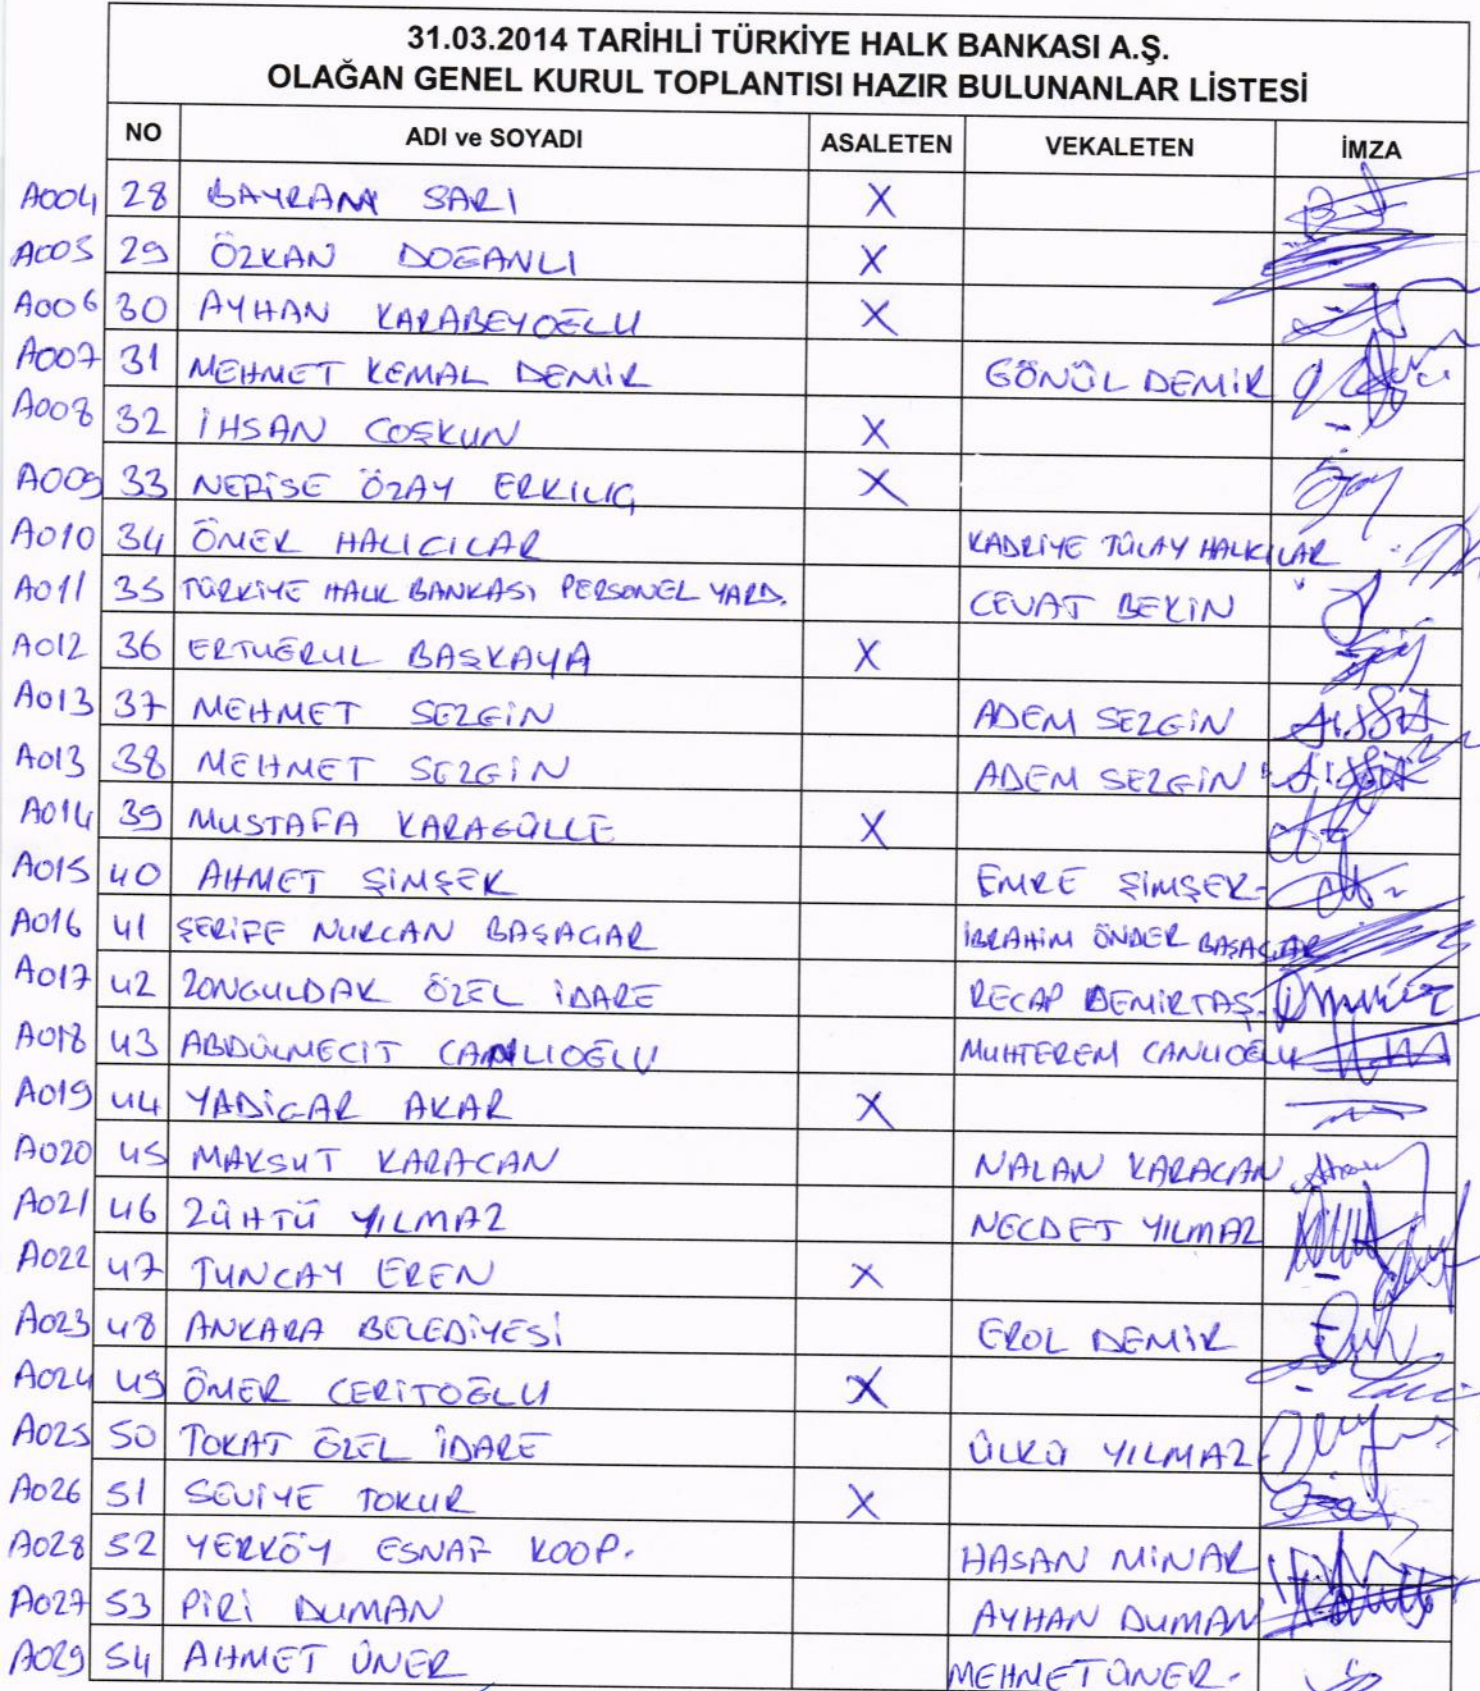 31.03.2014 TARİHLİ TÜRKİYE HALK BANKASI A.Ş.
OLAĞAN GENEL KURUL TOPLANTISI HAZIR BULUNANLAR LİSTESİ
NO ADI ve SOYADI ASALETEN VEKALETEN İMZA
A004 28 BAYRAM SARI X
A005 29 ÖZKAN DOĞANLI X
A006 30 AYHAN KARABEYOĞLU X
A007 31 MEHMET KEMAL DEMİR GÖNÜL DEMİR
A008 32 İHSAN COŞKUN X
A009 33 NEFİSE ÖZAY ERKILIÇ X
A010 34 ÖMER HALICILAR KADRİYE TÜLAY HALICILAR
A011 35 TÜRKİYE HALK BANKASI PERSONEL YARD. CEVAT BEKİN
A012 36 ERTUĞRUL BAŞKAYA X
A013 37 MEHMET SEZGİN ADEM SEZGİN
A013 38 MEHMET SEZGİN ADEM SEZGİN
A014 39 MUSTAFA KARAGÜLLE X
A015 40 AHMET ŞİMŞEK EMRE ŞİMŞEK
A016 41 ŞERİFE NURCAN BAŞAĞAR İBRAHİM ÖNDER BAŞAĞAR
A017 42 ZONGULDAK ÖZEL İDARE RECAP DEMİRTAŞ
A018 43 ABDÜLMECİT CANLIOĞLU MUHTEREM CANLIOĞLU
A019 44 YADİGAR AKAR X
A020 45 MAKSUT KARACAN NALAN KARACAN
A021 46 ZÜHTÜ YILMAZ NECDET YILMAZ
A022 47 TUNCAY EREN X
A023 48 ANKARA BELEDİYESİ EROL DEMİR
A024 49 ÖMER CERİTOĞLU X
A025 50 TOKAT ÖZEL İDARE ÜLKÜ YILMAZ
A026 51 SEVİYE TOKUR X
A028 52 YERKÖY ESNAF KOOP. HASAN MİNAR
A027 53 PİRİ DUMAN AYHAN DUMAN
A029 54 AHMET ÜNER MEHMET ÜNER